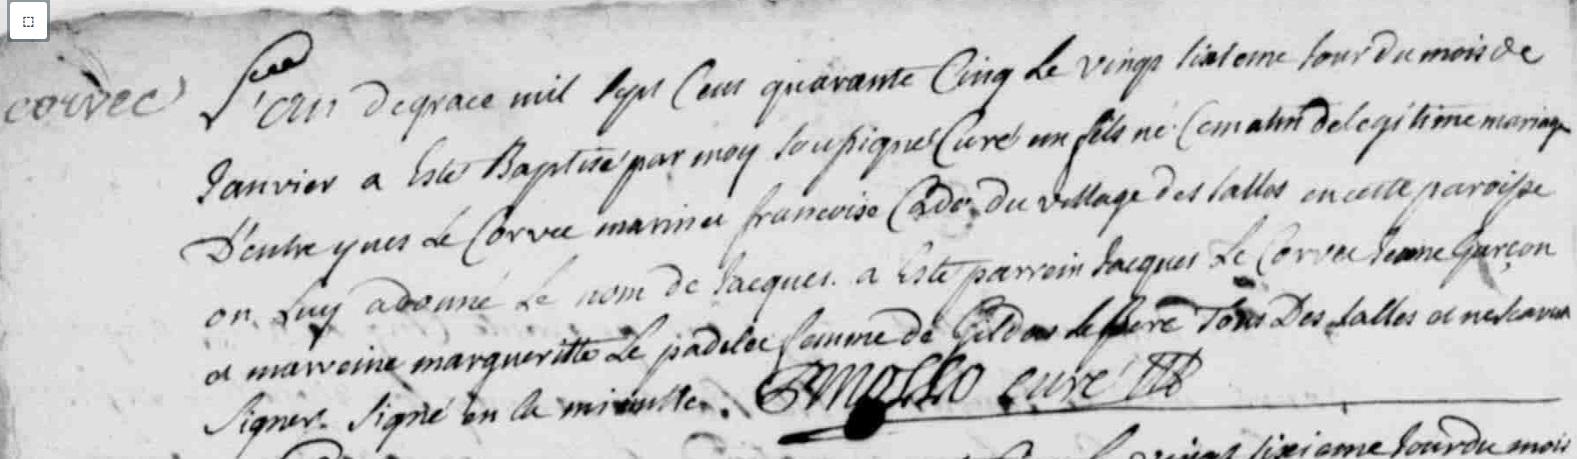 corvec L'an de grace mil sept Cens quarante Cinq Le vingt sixieme Jour du mois de
Janvier a Esté Baptisé par moy soussigné Curé un fils né Ce matin de legitime mariage
D'entre yves Le Corvec marinier francoise Cado du village des salles en cette paroisse
on Luy a donné Le nom de Jacques. a Esté parrein Jacques Le Corvec Jeune Garçon
et marreine margueritte Le padelec femme de Gildas Le fbere Tous Des salles et ne scavent
signer. signé en la minutte. curé
vingt sixieme Jour du mois